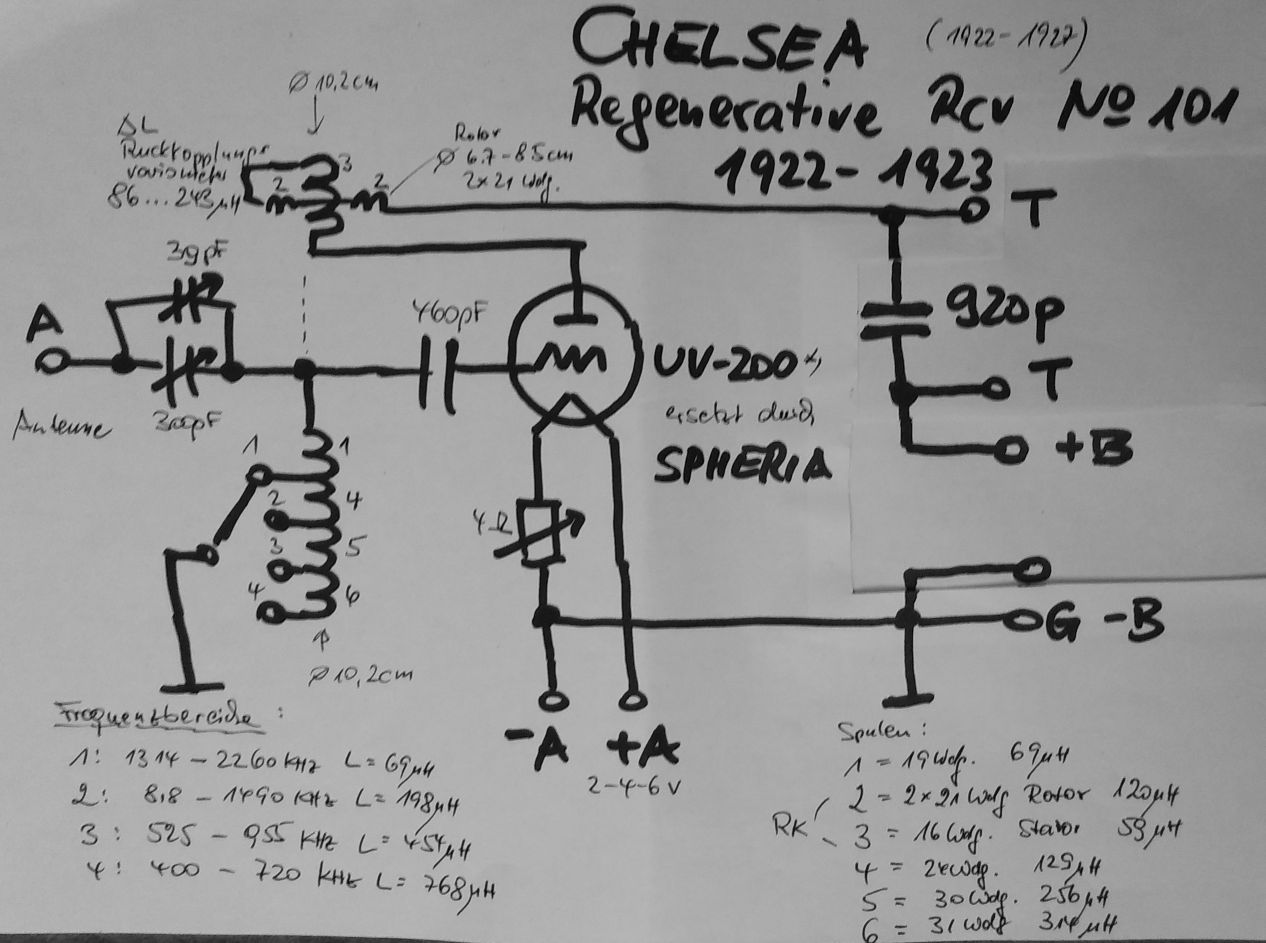 CHELSEA (1922-1927)
Regenerative Rcv No 101
1922-1923
Ø 10,2cm
ΔL
Rückkopplungs
variometer
86...243µH
Rotor
Ø 6.7-8.5cm
2x21 Wdg.
3
2
2
T
39pF
A
Antenne
300pF
460pF
UV-200
ersetzt durch
SPHERIA
920p
T
+B
1
1
2
4
3
5
4
6
Ø 10,2cm
4Ω
G -B
-A +A
2-4-6V
Frequenzbereiche:
1: 1314 - 2260 KHz L= 69µH
2: 8,8 - 1490 KHz L= 198µH
3: 525 - 955 KHz L= 454µH
4: 400 - 720 KHz L= 768µH
Spulen:
1 = 19 Wdg. 69µH
RK
2 = 2x21 Wdg Rotor 120µH
3 = 16 Wdg. Stator 59µH
4 = Wdg. 129µH
5 = 30 Wdg. 256µH
6 = 31 Wdg 314µH